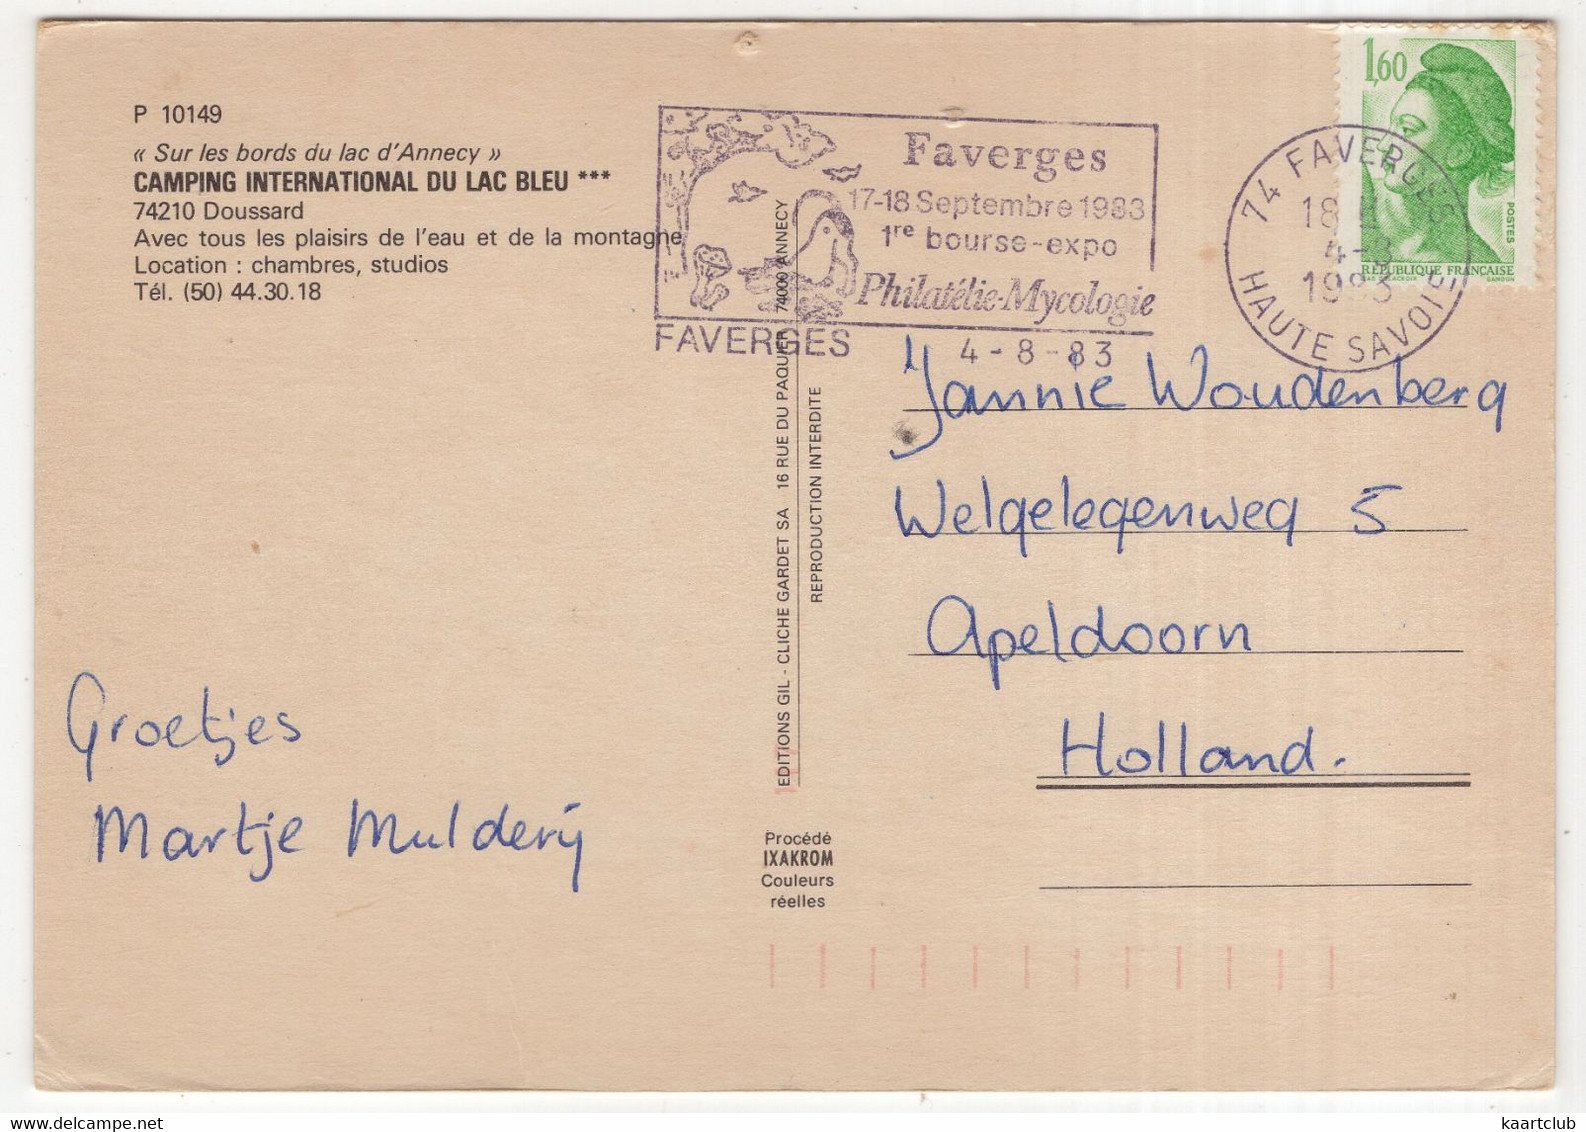 P 10149
« Sur les bords du lac d'Annecy »
CAMPING INTERNATIONAL DU LAC BLEU ***
74210 Doussard
Avec tous les plaisirs de l'eau et de la montagne
Location : chambres, studios
Tél. (50) 44.30.18
Faverges
17-18 Septembre 1983
1re bourse-expo
Philatélie-Mycologie
FAVERGES
4-8-83
74 FAVERGES
18 H
4-8
1983
HAUTE SAVOIE
1,60
POSTES
RÉPUBLIQUE FRANÇAISE
GANDON
EDITIONS GIL - CLICHE GARDET SA 16 RUE DU PAQUIER 74000 ANNECY
REPRODUCTION INTERDITE
Jannie Woudenberg
Welgelegenweg 5
Apeldoorn
Holland.
Groetjes
Martje Mulderij
Procédé
IXAKROM
Couleurs
réelles
kaartclub